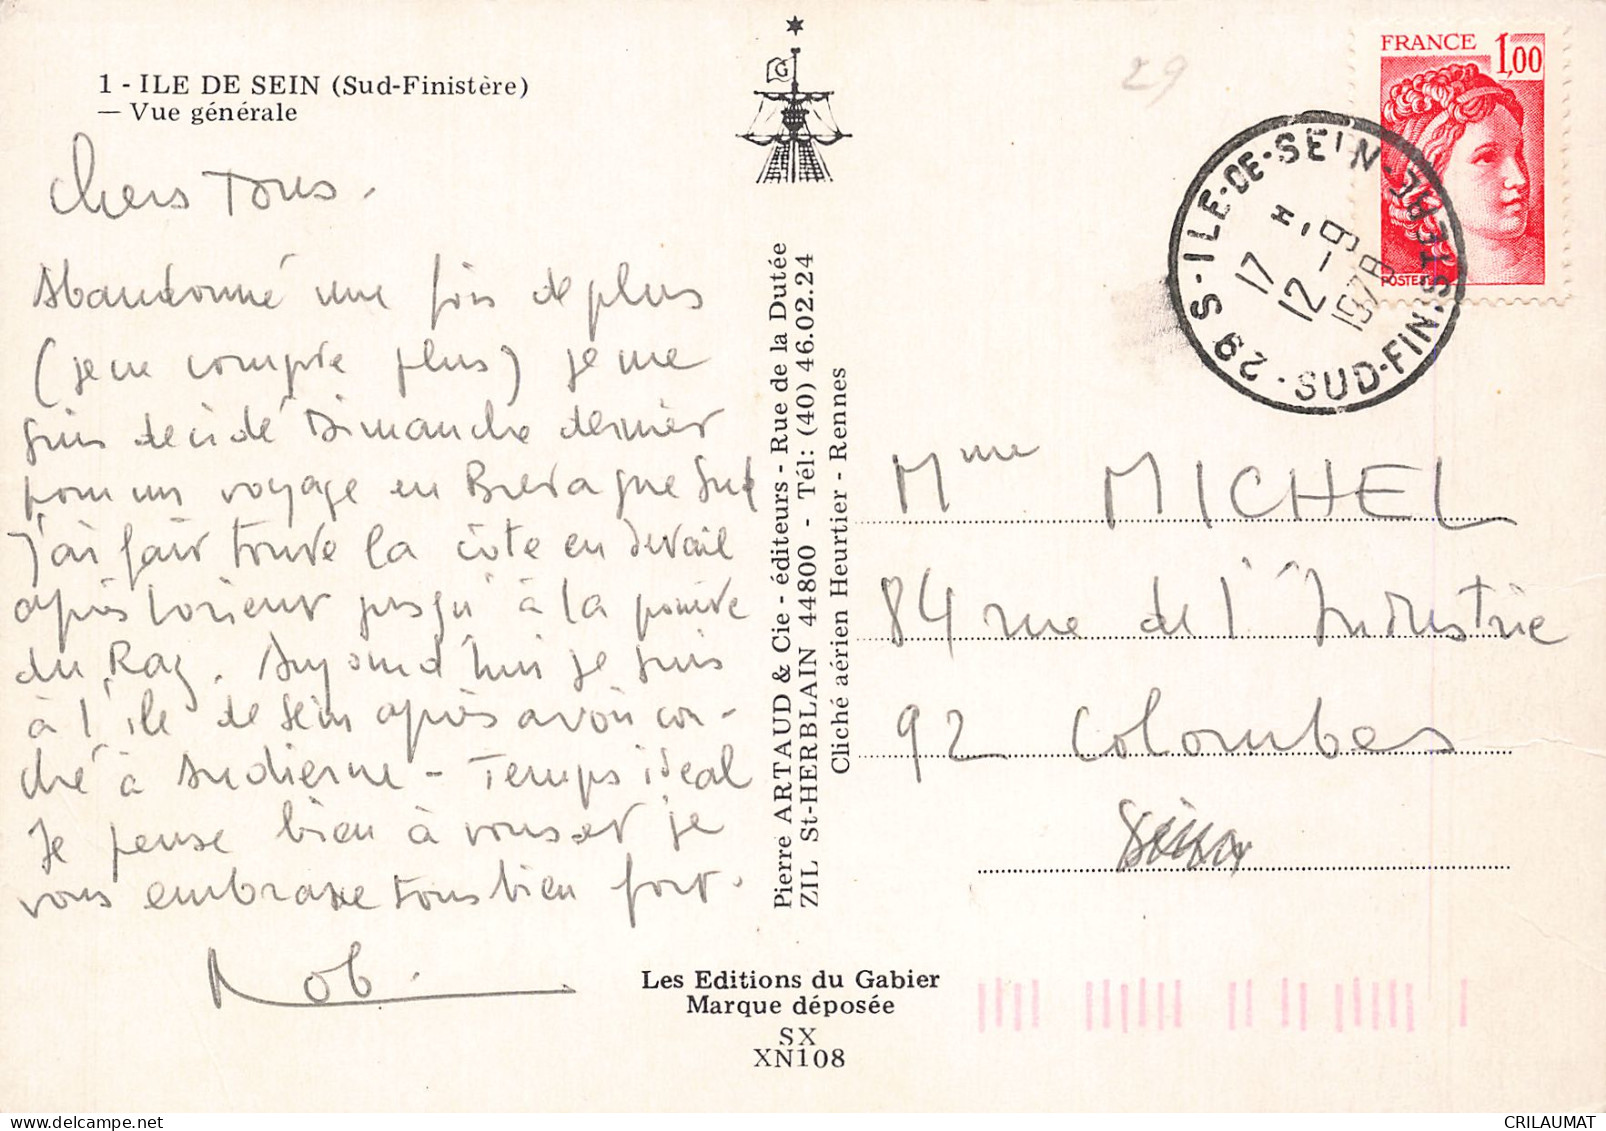 1 - ILE DE SEIN (Sud-Finistère)
— Vue générale
Chers Tous.
Abandonné une fois de plus
(je ne compte plus) je me
suis décidé Dimanche dernier
pour un voyage en Bretagne Sud
J'ai fait toute la côte en détail
après Lorient jusqu'à la pointe
du Raz. Aujourd'hui je suis
à l'île de Sein après avoir cou-
ché à Audierne - Temps idéal
Je pense bien à vous et je
vous embrasse tous bien fort.
Pierre ARTAUD & Cie - éditeurs - Rue de la Dutée
ZIL St-HERBLAIN 44800 - Tél: (40) 46.02.24
Cliché aérien Heurtier - Rennes
Les Editions du Gabier
Marque déposée
SX
XN108
29
FRANCE 1,00
POSTES
29 S - ILE-DE-SEIN
SUD-FINISTERE
17 H
12 - 9
1978
Mme MICHEL
84 rue de l'Industrie
92 Colombes
CRILAUMAT